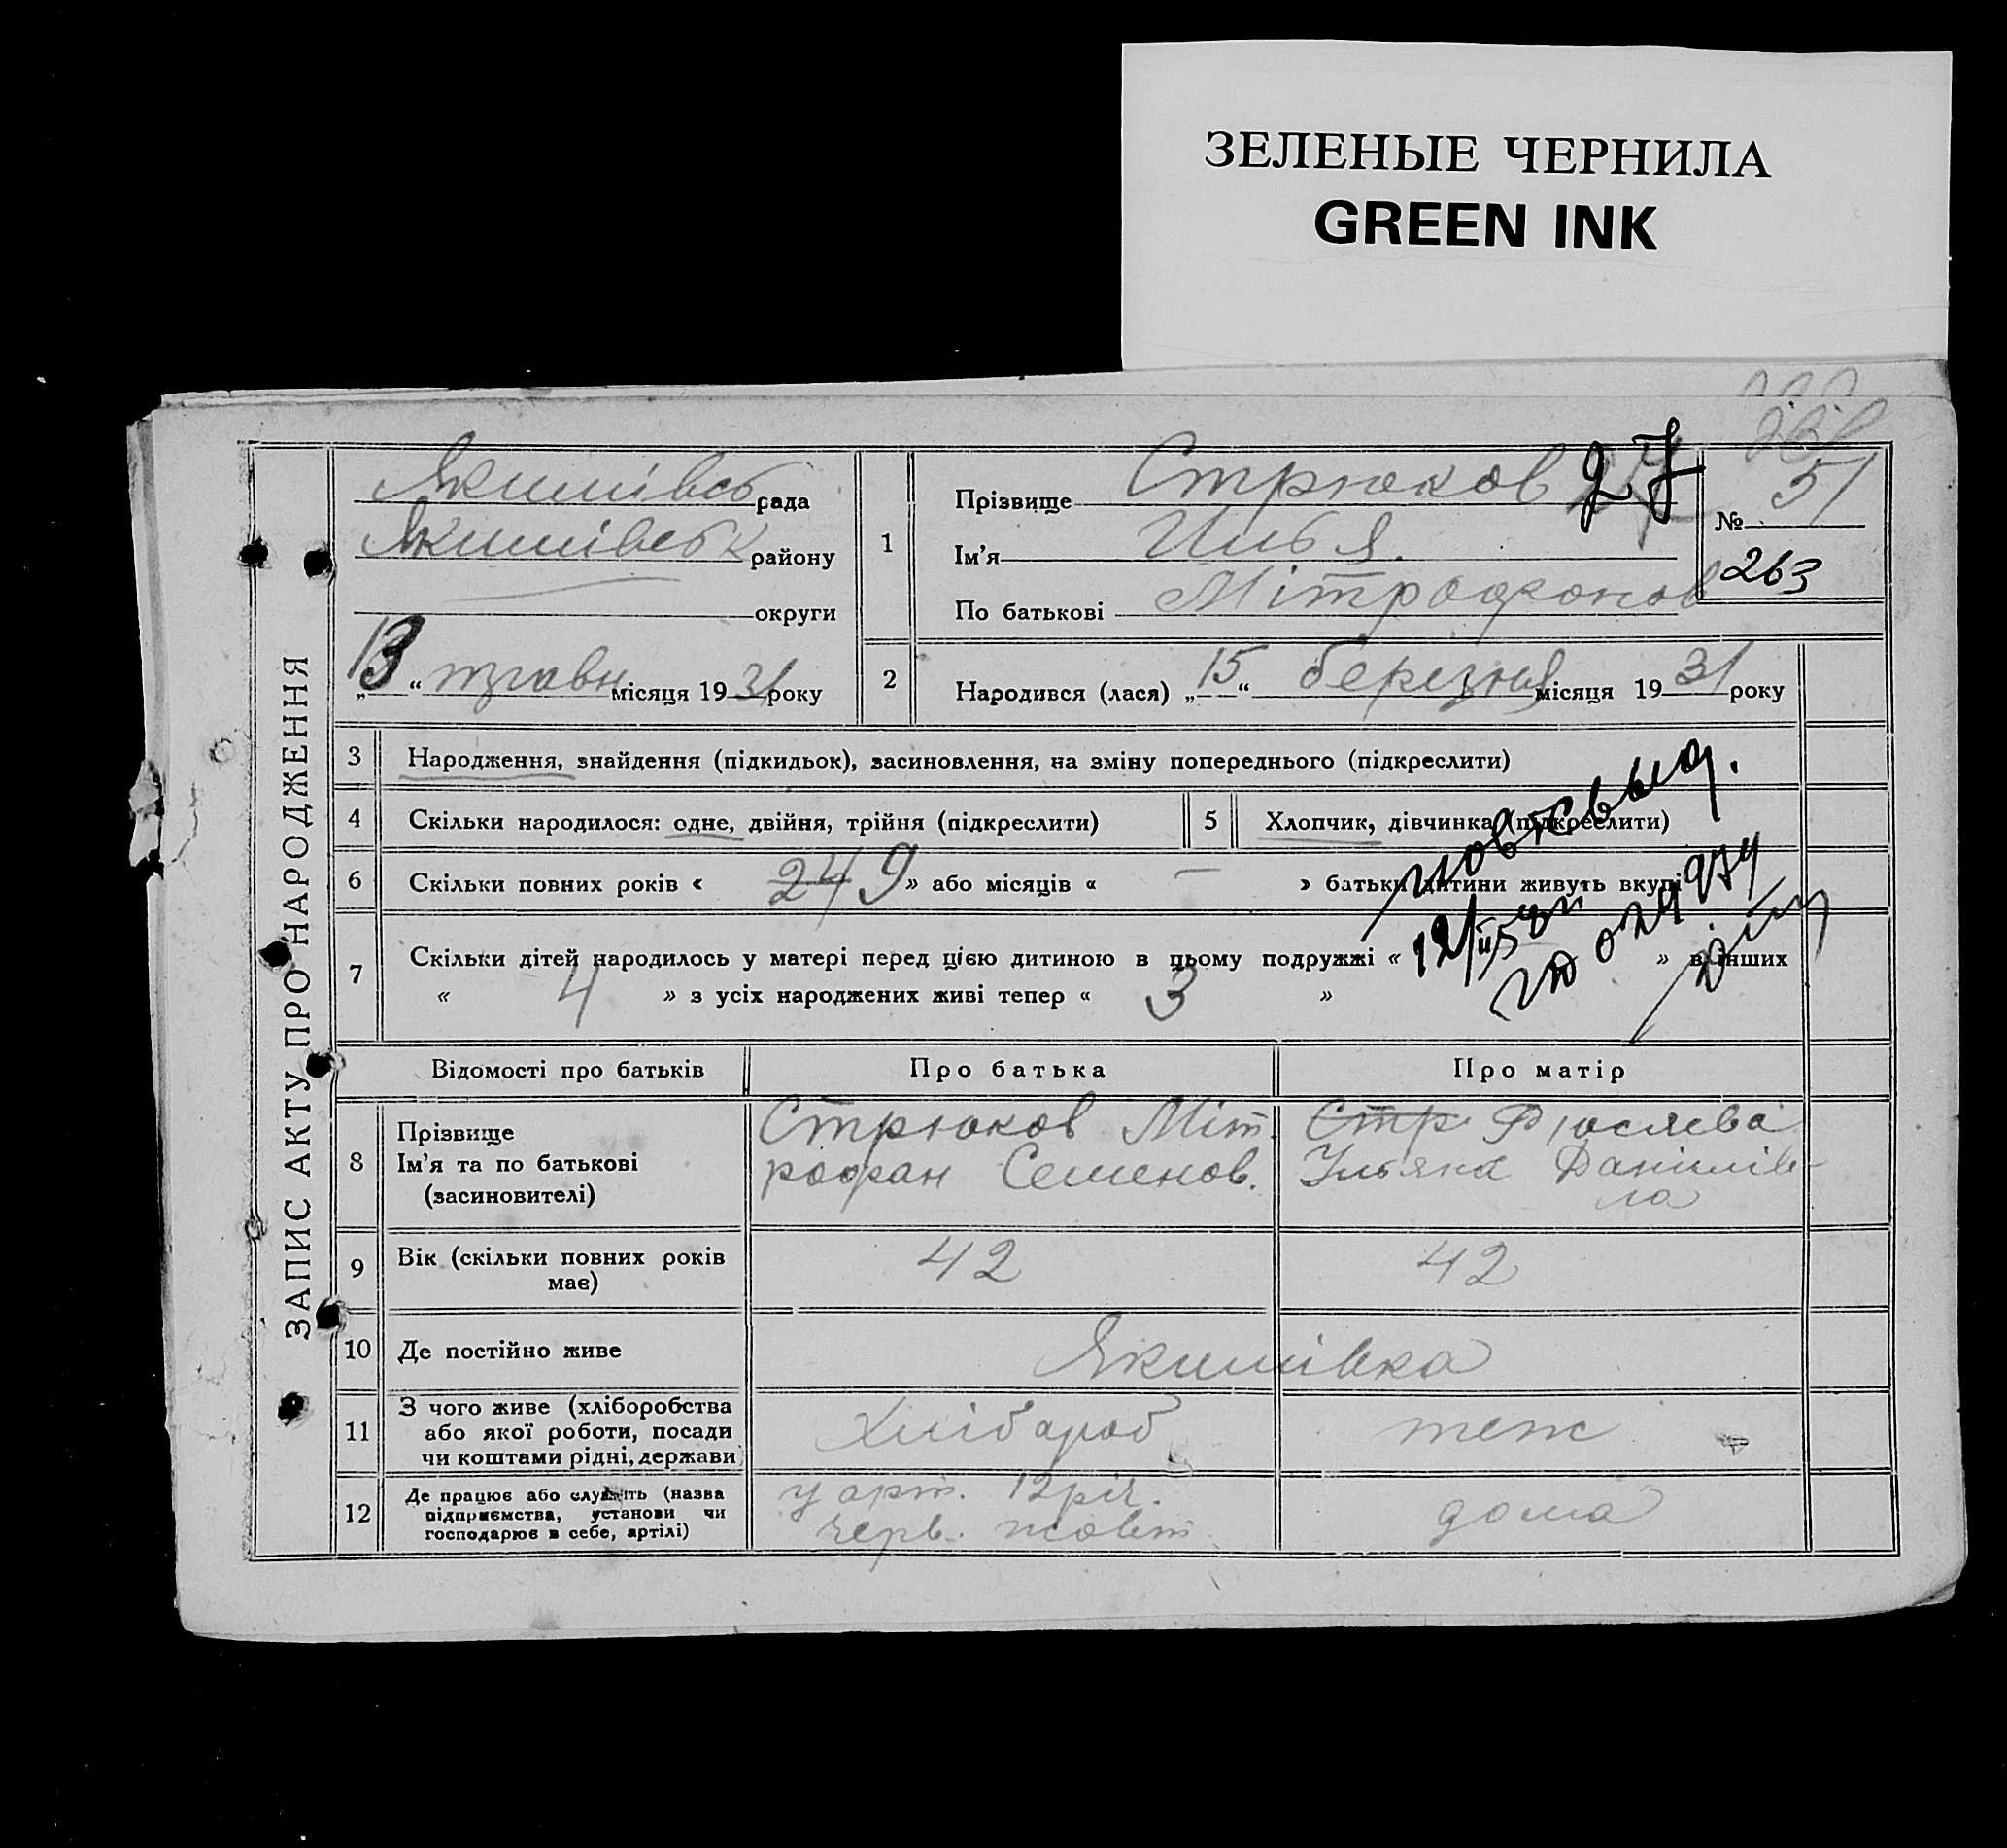 ЗЕЛЕНЫЕ ЧЕРНИЛА
GREEN INK
ЗАПИС АКТУ ПРО НАРОДЖЕННЯ
Якимівсь рада
Якимівськ району
округи
„13“ травн місяця 1931 року
1
Прізвище Стрюков 27
Ім'я Илья.
По батькові Мітрофонов
№ 51
263
2
Народився (лася) „15“ березня місяця 1931 року
3 Народження, знайдення (підкидьок), засиновлення, на зміну попереднього (підкреслити)
4 Скільки народилося: одне, двійня, трійня (підкреслити)
5 Хлопчик, дівчинка (підкреслити)
6 Скільки повних років « 24 9 » або місяців « — » батьки дитини живуть вкупі
7 Скільки дітей народилось у матері перед цією дитиною в цьому подружжі « » в інших
« 4 » з усіх народжених живі тепер « 3 »
Відомості про батьків
Про батька
Про матір
8
Прізвище
Ім'я та по батькові
(засиновителі)
Стрюков Міт.
рофан Семенов.
Стр
Ульяна Данилів-
на
9
Вік (скільки повних років
має)
42
42
10 Де постійно живе
Якимівка
11
З чого живе (хліборобства
або якої роботи, посади
чи коштами рідні, держави
Хлібароб
теж
12
Де працює або служить (назва
підприємства, установи чи
господарює в себе, артілі)
у арт. 12 річ.
черв. жовт
дома